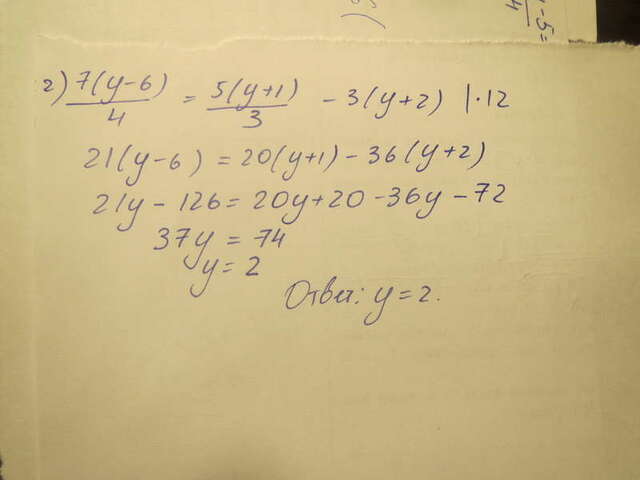 -5=
4
г) 7(y-6)/4 = 5(y+1)/3 - 3(y+2) |·12
21(y-6) = 20(y+1) - 36(y+2)
21y - 126 = 20y + 20 - 36y - 72
37y = 74
y = 2
Ответ: y = 2.